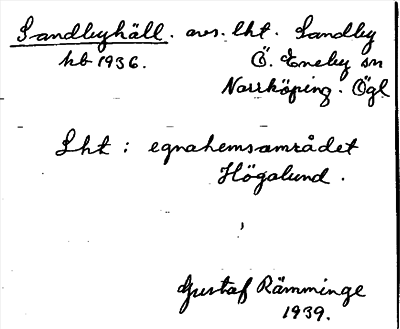 Sandbyhäll. avs. lht. Sandby
kb 1936. Ö. Eneby sn
Norrköping. Ögl
Lht : egnahemsområdet
Högalund.
Gustaf Rämminge
1939.